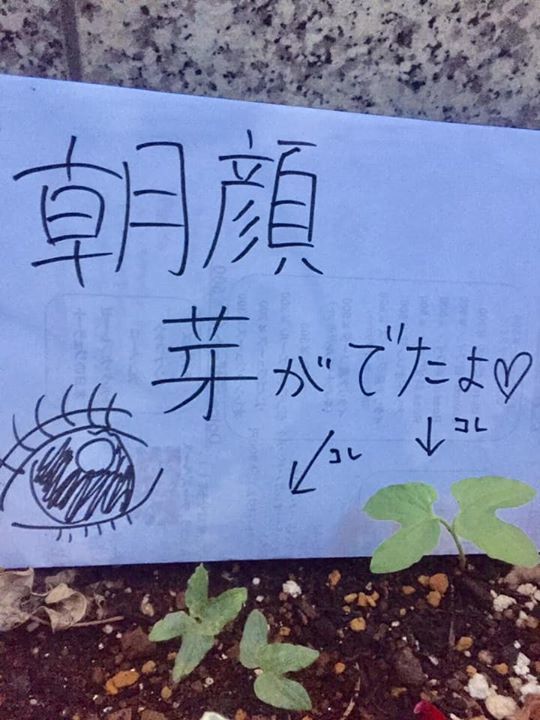 朝顔
芽がでたよ♡
コレ
コレ